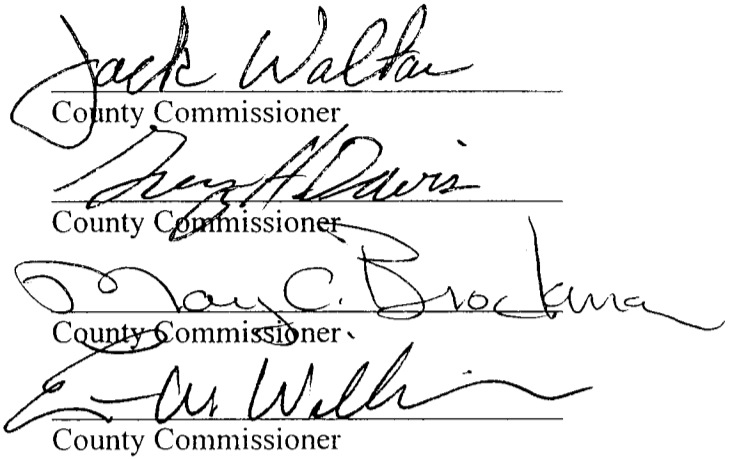 Jack Walton
County Commissioner
Greg H Davis
County Commissioner
Mary C. Brockman
County Commissioner
County Commissioner